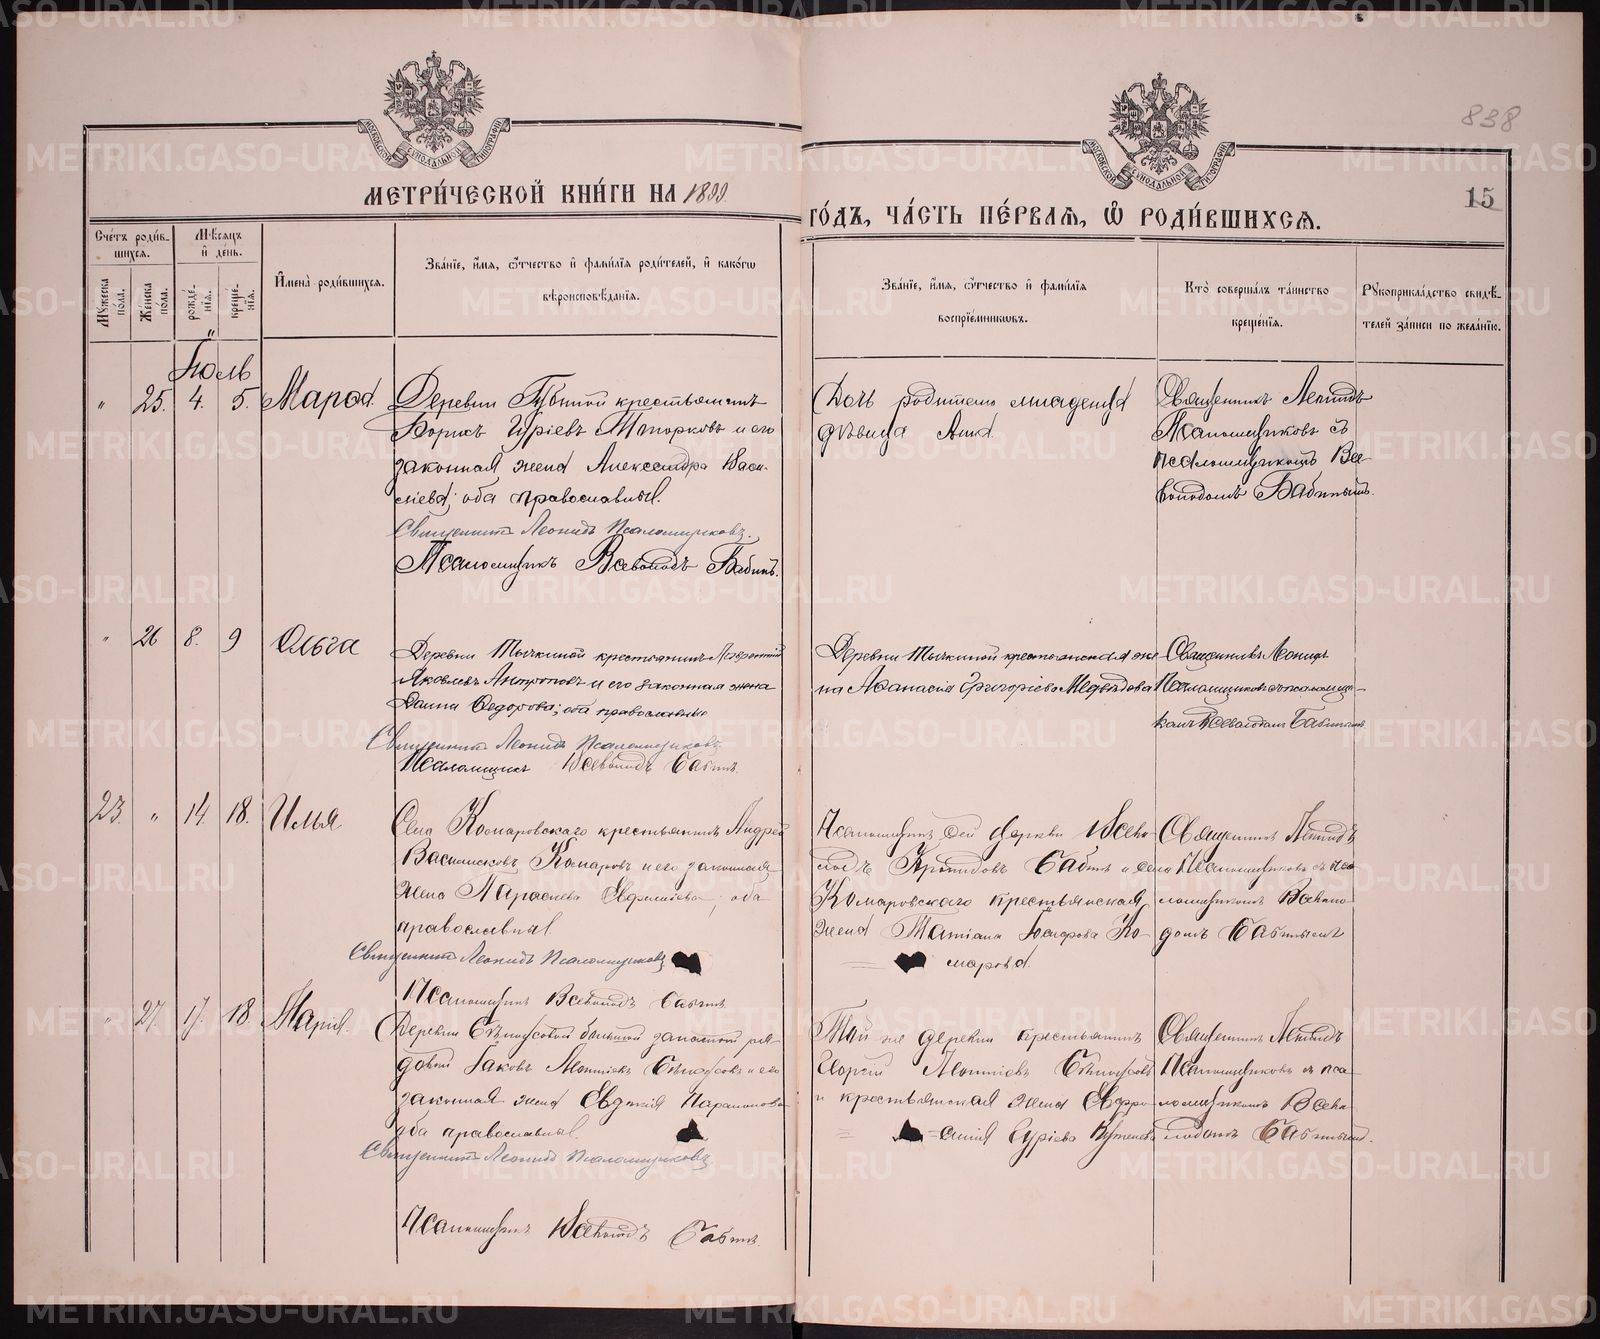 838
МОСКОВСКОЙ СУНОДАЛЬНОЙ ТИПОГРАФІИ
МОСКОВСКОЙ СУНОДАЛЬНОЙ ТИПОГРАФІИ
МЕТРИ́ЧЕСКОЙ КНИ́ГИ НА 1899
ГО́ДЪ, ЧА́СТЬ ПЕ́РВАѦ, Ѽ РОДИ́ВШИХСѦ.
15
Сче́тъ роди́в-
шихсѧ.
Мѣ́сѧцъ
и҆ де́нь.
Му́жеска
по́ла.
Же́нска
по́ла.
рожде́-
нїѧ.
креще́-
нїѧ.
И҆мена̀ роди́вшихсѧ.
Зва́нїе, и҆́мѧ, ѻ҆́тчество и҆ фами́лїѧ роди́телей, и҆ како́гѡ
вѣроисповѣ́данїѧ.
Зва́нїе, и҆́мѧ, ѻ҆́тчество и҆ фами́лїѧ
воспрїе́мникѡвъ.
Кто̀ соверша́лъ та́инство
креще́нїѧ.
Рꙋкоприкла́дство свидѣ́-
телей за́писи по жела́нїю.
Іюль
" 25. 4. 5. Мара.
Деревни крестьянинъ
Борисъ Гуріевъ и его
законная жена Александра Васи-
лева; оба православные.
Священникъ Леонидъ Псаломщиковъ.
Псаломщикъ Всеволодъ Бабинъ.
Дочь родителя младенца
дѣвица Анна
Священникъ Леонидъ
Псаломщиковъ съ
псаломщикомъ Все-
володомъ Бабинымъ.
" 26 8. 9 Ольга
Деревни Тычкиной крестьянинъ Лаврентій
Яковлевъ Антроповъ и его законная жена
Федорова; оба православные
Священникъ Леонидъ Псаломщиковъ
Псаломщикъ Всеволодъ Бабинъ.
Деревни Тычкиной крестьянская же-
на Афанасія Григоріева Медвѣдева
Священникъ Леонидъ
Псаломщиковъ съ псаломщи-
комъ Всеволодомъ Бабинымъ
23. " 14. 18. Илья
Села Комаровскаго крестьянинъ Андрей
Васильевъ Комаровъ и его законная
жена Параскева; оба
православные
Священникъ Леонидъ Псаломщиковъ
Псаломщикъ Всеволодъ Бабинъ
Псаломщикъ сей церкви Всево-
лодъ Бабинъ и села
Комаровскаго крестьянская
жена Татіана Ко-
марова.
Священникъ Леонидъ
Псаломщиковъ съ пса-
ломщикомъ Всеволо-
домъ Бабинымъ
" 27. 17. 18. Марія.
Деревни запасной ря-
довой Іаковъ и его
законная жена Евдокія Парамонова
оба православные.
Священникъ Леонидъ Псаломщиковъ
Псаломщикъ Всеволодъ Бабинъ.
Той же деревни крестьянинъ
и крестьянская жена Евфро-
синія Гуріева
Священникъ Леонидъ
Псаломщиковъ съ пса-
ломщикомъ Всево-
лодомъ Бабинымъ.
METRIKI.GASO-URAL.RU